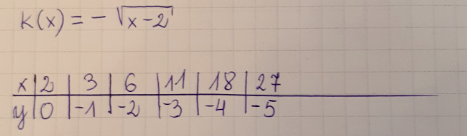 K(x) = - √x-2
x | 2 | 3 | 6 | 11 | 18 | 27
y | 0 | -1 | -2 | -3 | -4 | -5